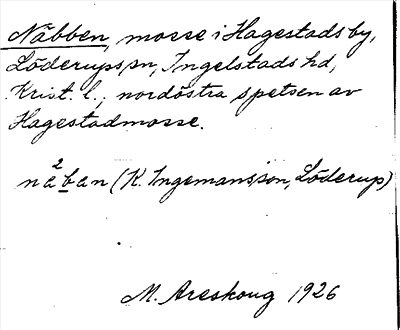 Näbben, mosse i Hagestads by,
Löderups sn, Ingelstads hd,
Krist. l.; nordöstra spetsen av
Hagestadmosse.
nä²ban (K. Ingemansson, Löderup)
M. Areskoug 1926